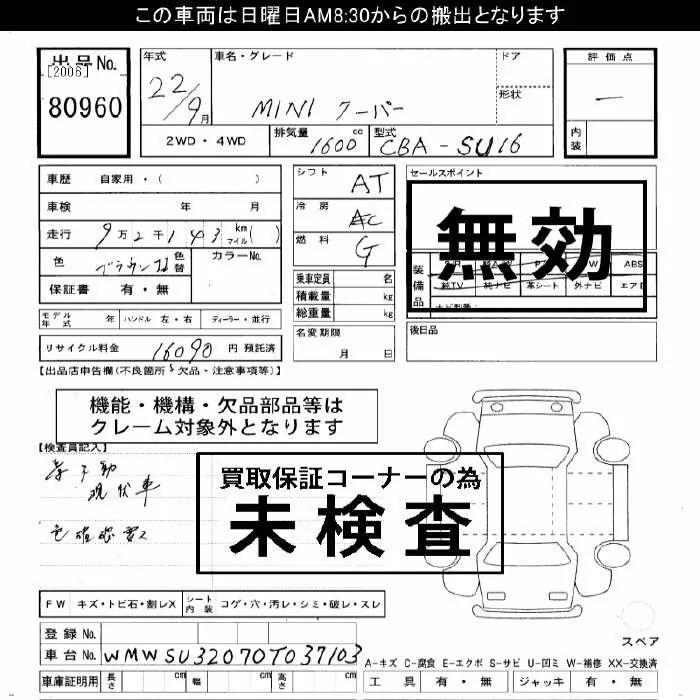 この車両は日曜日AM8:30からの搬出となります
出品No.
[2006]
80960
年式
22/9月
車名・グレード
MINI クーパー
ドア
形状
評価点
—
内装
2WD・4WD
排気量 1600 cc
型式 CBA-SU16
車歴 自家用・( )
車検 年 月
走行 9万2千143 km マイル( )
色
色替
カラーNo.
保証書 有・無
シフト AT
冷房 AC
燃料 G
セールスポイント
無効
装備品
ABS
純TV 純ナビ 革シート 外ナビ
乗車定員 名
積載量 kg
総重量 kg
モデル年式 年 ハンドル 左・右 ディーラー・並行
名変期限
月 日
後日品
リサイクル料金 16090 円 預託済
【出品店申告欄(不良箇所・欠品・注意事項等)】
機能・機構・欠品部品等は
クレーム対象外となります
【検査員記入】
不動
現状車
買取保証コーナーの為
未検査
色確認要ス
FW キズ・トビ石・割レX
シート内装 コゲ・穴・汚レ・シミ・破レ・スレ
スペア
登録No.
車台No. WMWSU32070T037103
A-キズ C-腐食 E-エクボ S-サビ U-凹ミ W-補修 XX-交換済
車庫証明用 長さ cm 幅 cm 高さ cm
工具 有・無 ジャッキ 有・無